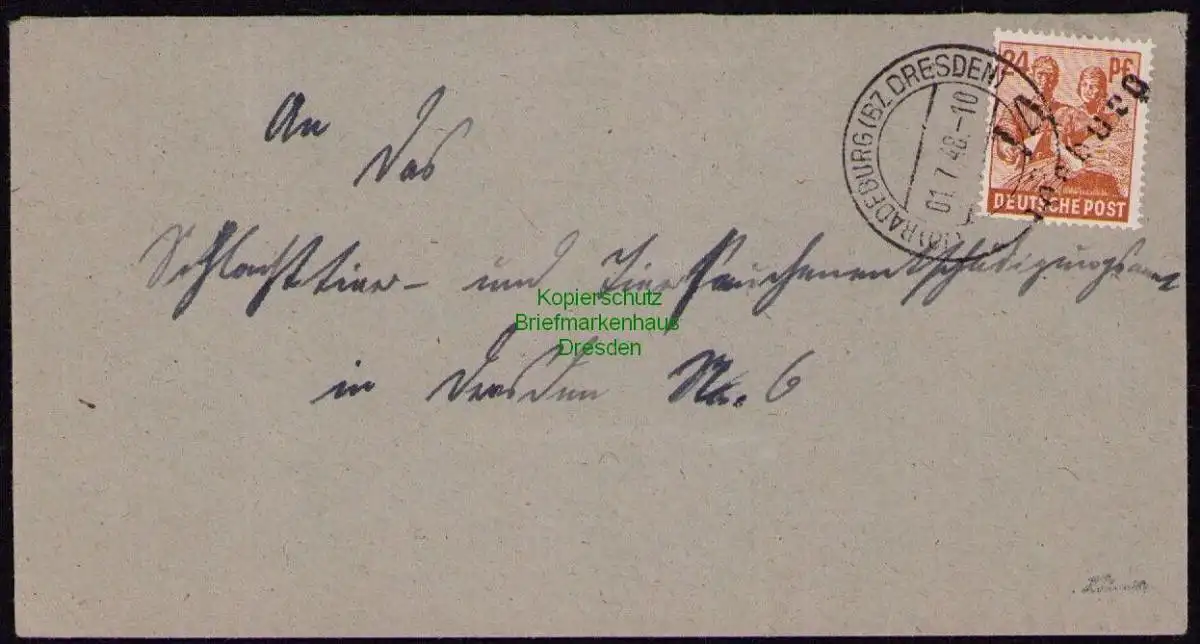 An
das
Schlachttier- und Tierseuchenentschädigungsamt
in Dresden Na. 6
(10) RADEBURG (BZ. DRESDEN)
01.7.48.-10
24 Pf
DEUTSCHE POST
14
Radeburg
Kopierschutz
Briefmarkenhaus
Dresden